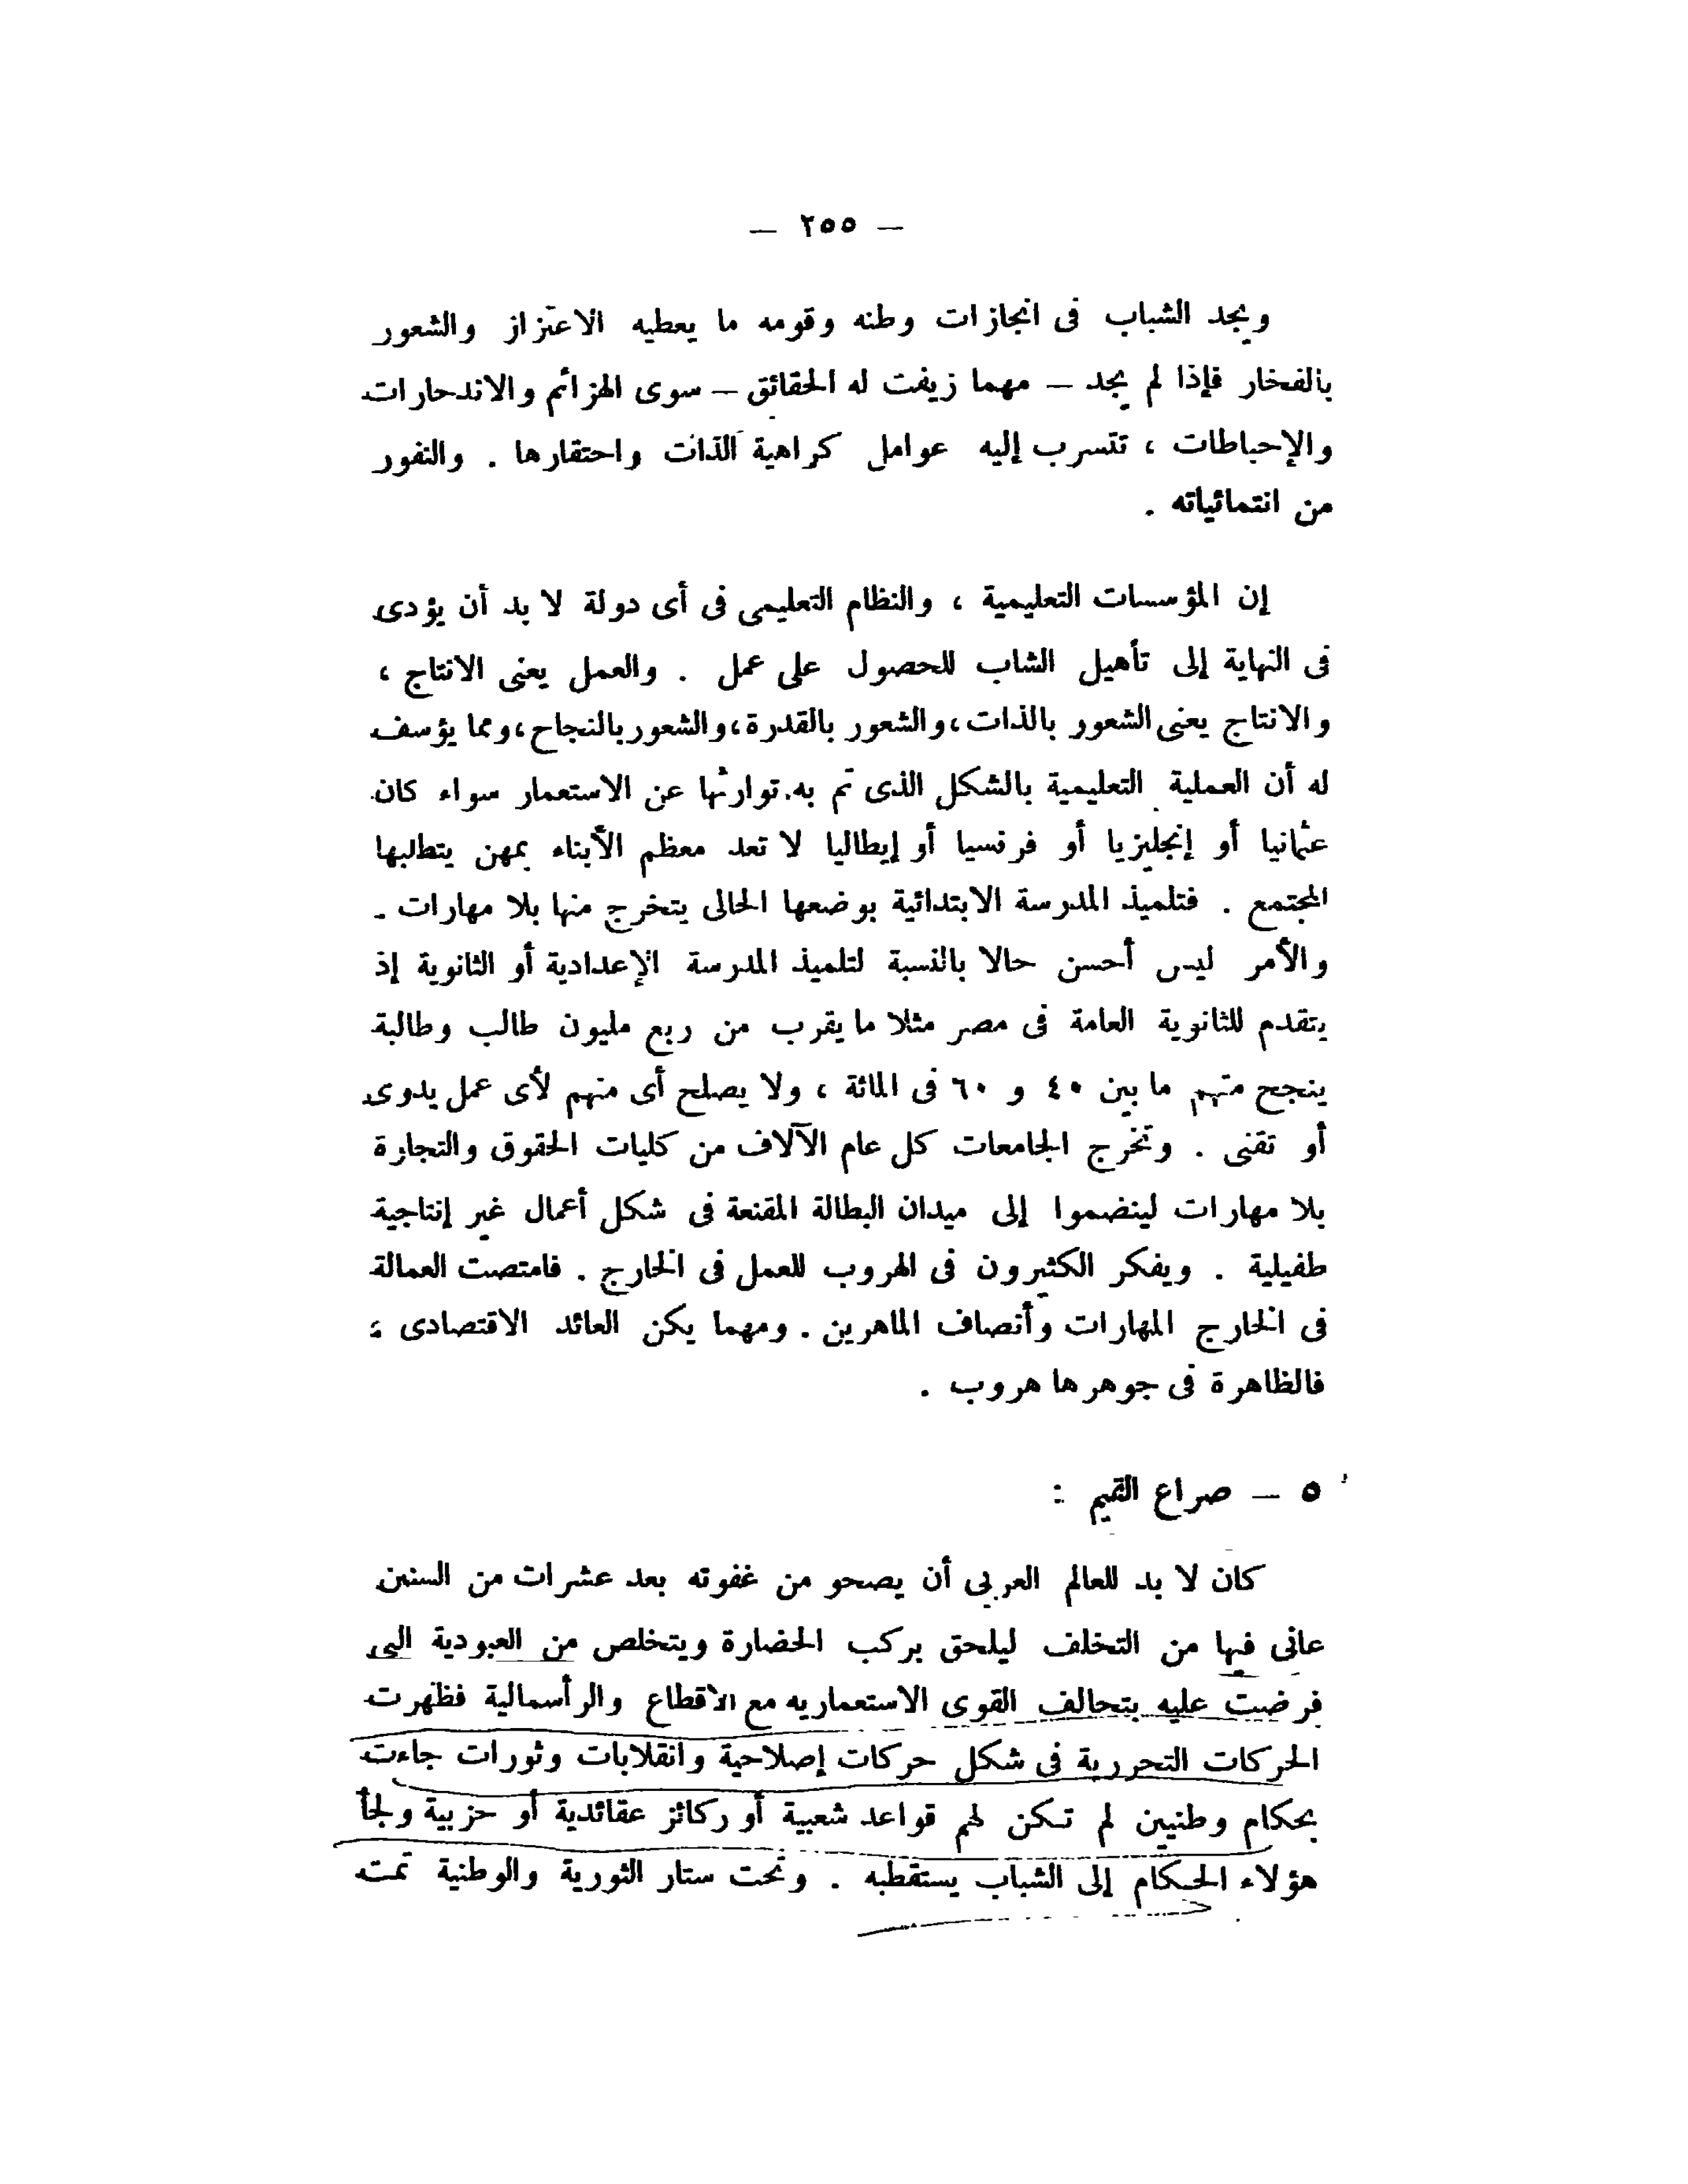 — ٢٥٥ —
ويجد الشباب فى انجازات وطنه وقومه ما يعطيه الاعتزاز والشعور
بالفخار فإذا لم يجد — مهما زيفت له الحقائق — سوى الهزائم والاندحارات
والإحباطات ، تتسرب إليه عوامل كراهية الذات واحتقارها . والنفور
من انتمائياته .
إن المؤسسات التعليمية ، والنظام التعليمى فى أى دولة لا بد أن يؤدى
فى النهاية إلى تأهيل الشاب للحصول على عمل . والعمل يعنى الانتاج ،
والانتاج يعنى الشعور بالذات ، والشعور بالقدرة ، والشعور بالنجاح ، ومما يؤسف
له أن العملية التعليمية بالشكل الذى تم به توارثها عن الاستعمار سواء كان
عثمانيا أو إنجليزيا أو فرنسيا أو إيطاليا لا تعد معظم الأبناء بمهن يتطلبها
المجتمع . فتلميذ المدرسة الابتدائية بوضعها الحالى يتخرج منها بلا مهارات .
والأمر ليس أحسن حالا بالنسبة لتلميذ المدرسة الإعدادية أو الثانوية إذ
يتقدم للثانوية العامة فى مصر مثلا ما يقرب من ربع مليون طالب وطالبة
ينجح منهم ما بين ٤٠ و ٦٠ فى المائة ، ولا يصلح أى منهم لأى عمل يدوى
أو تقنى . وتخرج الجامعات كل عام الآلاف من كليات الحقوق والتجارة
بلا مهارات لينضموا إلى ميدان البطالة المقنعة فى شكل أعمال غير إنتاجية
طفيلية . ويفكر الكثيرون فى الهروب للعمل فى الخارج . فامتصت العمالة
فى الخارج المهارات وأنصاف الماهرين . ومهما يكن العائد الاقتصادى ؛
فالظاهرة فى جوهرها هروب .
٥ — صراع القيم :
كان لا بد للعالم العربى أن يصحو من غفوته بعد عشرات من السنين
عانى فيها من التخلف ليلحق بركب الحضارة ويتخلص من العبودية التى
فرضت عليه بتحالف القوى الاستعماريه مع الاقطاع والرأسمالية فظهرت
الحركات التحررية فى شكل حركات إصلاحية وانقلابات وثورات جاءت
بحكام وطنيين لم تكن لهم قواعد شعبية أو ركائز عقائدية أو حزبية ولجأ
هؤلاء الحكام إلى الشباب يستقطبه . وتحت ستار الثورية والوطنية تمت